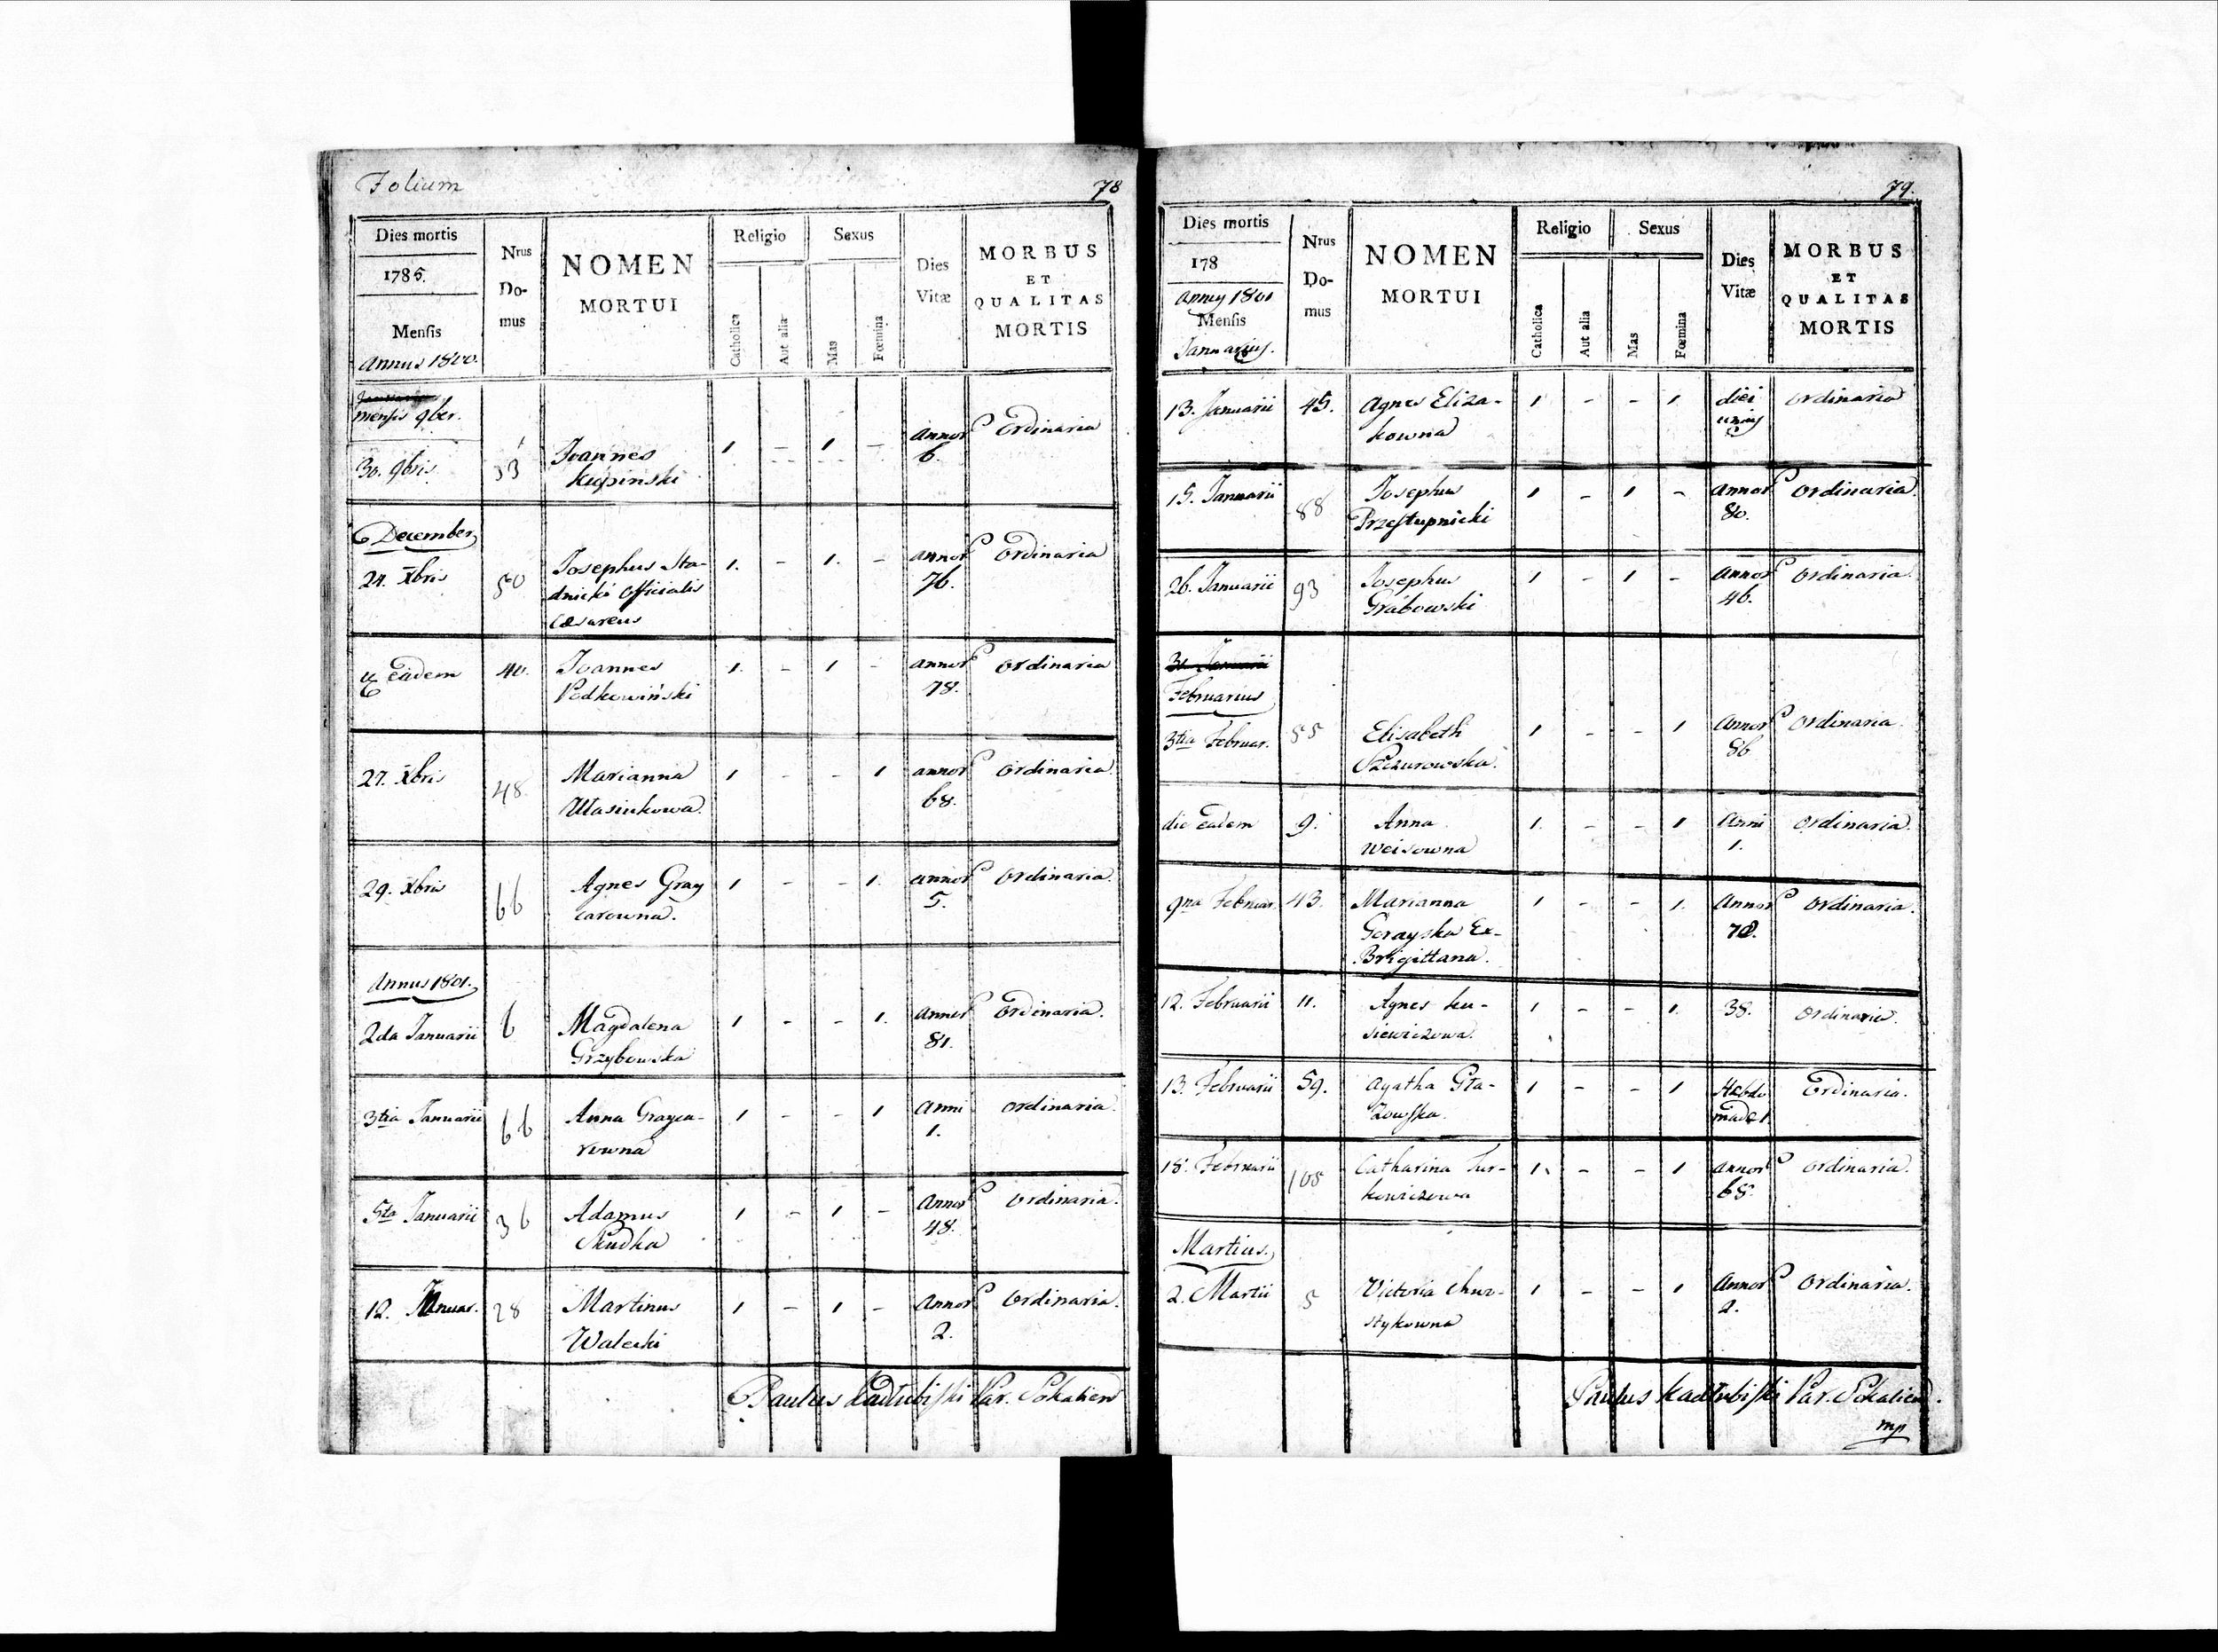 Folium 78
Dies mortis
1785.
Mensis
Annus 1800.
Nrus
Do-
mus
NOMEN
MORTUI
Religio
Catholica
Aut alia
Sexus
Mas
Fœmina
Dies
Vitæ
MORBUS
ET
QUALITAS
MORTIS
mensis 9ber.
30. 9bris 33 Joannes 1 - 1 - Annor 6. Ordinaria
Kupinski
December
24. Xbris 50 Josephus Sta- 1. - 1. - annor 76. Ordinaria
dnicki Officialis
Cæsareus
Eadem 40. Joannes 1. - 1 - annor 78. Ordinaria
Podkowiński
27. Xbris 48. Marianna 1 - - 1 annor 68. Ordinaria
29. Xbris 66 Agnes Gray 1 - - 1. annor 5. Ordinaria.
carowna.
Annus 1801.
2da Januarii 6 Magdalena 1 - - 1. Annor 81. Ordinaria.
Grzybowska
3tia Januarii 66 Anna Grayca- 1 - - 1 Anni 1. Ordinaria.
rowna
5ta Januarii 36 Adamus 1 - 1 - Annor 48. Ordinaria.
Skudka
12. Januar. 28 Martinus 1 - 1 - Annor 2. Ordinaria.
Walecki
Paulus Kadłubiski Par. Sokalien
79.
Dies mortis
178
Anny 1801
Mensis
Januarius.
Nrus
Do-
mus
NOMEN
MORTUI
Religio
Catholica
Aut alia
Sexus
Mas
Fœmina
Dies
Vitæ
MORBUS
ET
QUALITAS
MORTIS
13. Januarii 45. Agnes Eliza- 1 - - 1 diei unius Ordinaria
kowna
15. Januarii 88 Josephus 1 - 1 - Annor 80. Ordinaria.
Przestupnicki
26. Januarii 93 Josephus 1 - 1 - Annor 46. Ordinaria.
Grabowski
30 Januarii
Februarius
3tia Februar. 55 Elisabeth 1 - - 1 Annor 86 Ordinaria.
Szczurowska.
die Eadem 9. Anna 1. - - 1 Anni 1. Ordinaria.
Weisowna
9na Februar. 43. Marianna 1 - - 1. Annor 78. Ordinaria.
Gorayska Ex-
Brigittana.
12. Februarii 11. Agnes Ku- 1 - - 1. 38. Ordinaria.
siewiczowa.
13. Februarii 59. Agatha Gła- 1 - - 1 Hebdo Ordinaria.
zowska. madæ 1.
18. Februarii 105 Catharina Tur- 1. - - 1 annor 65. Ordinaria.
kowiczowa
Martius.
2. Martii 5 Victoria Chwo- 1 - - 1 Annor 2. Ordinaria.
stykowna
Paulus Kadłubiski Par. Sokalien.
mp